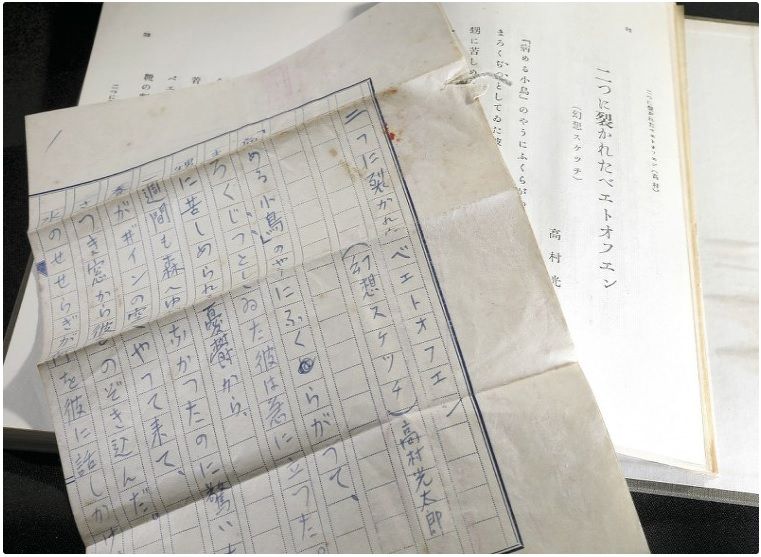 二つに裂かれたベエトオフエン
(幻想スケッチ)高村光太郎
「病める小鳥」のやうにふくらがつて、
まろくぢつとしてゐた彼は急に立つた。
甥に苦しめられ憂鬱から、
一週間も森へゆ なかつたのに驚いた
春がヰインの空へやつて来て、
さつき窓から彼をのぞき込んだ。
水のせせらぎが 彼に話しか
二つに裂かれたベエトオフエン(高村)
二つに裂かれたベエトオフエン
(幻想スケッチ)
高村光
「病める小鳥」のやうにふくらが
まろくぢつとしてゐた彼
甥に苦しめ